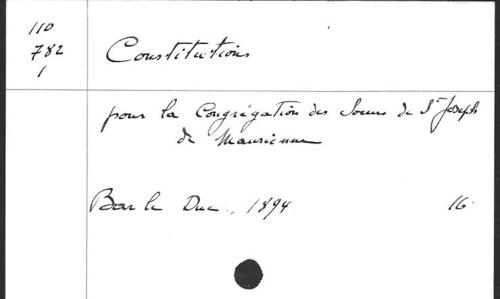 110
782
1
Constitutions
pour la Congrégation des Soeurs de St Joseph
de Maurienne
Bar le Duc, 1894 16